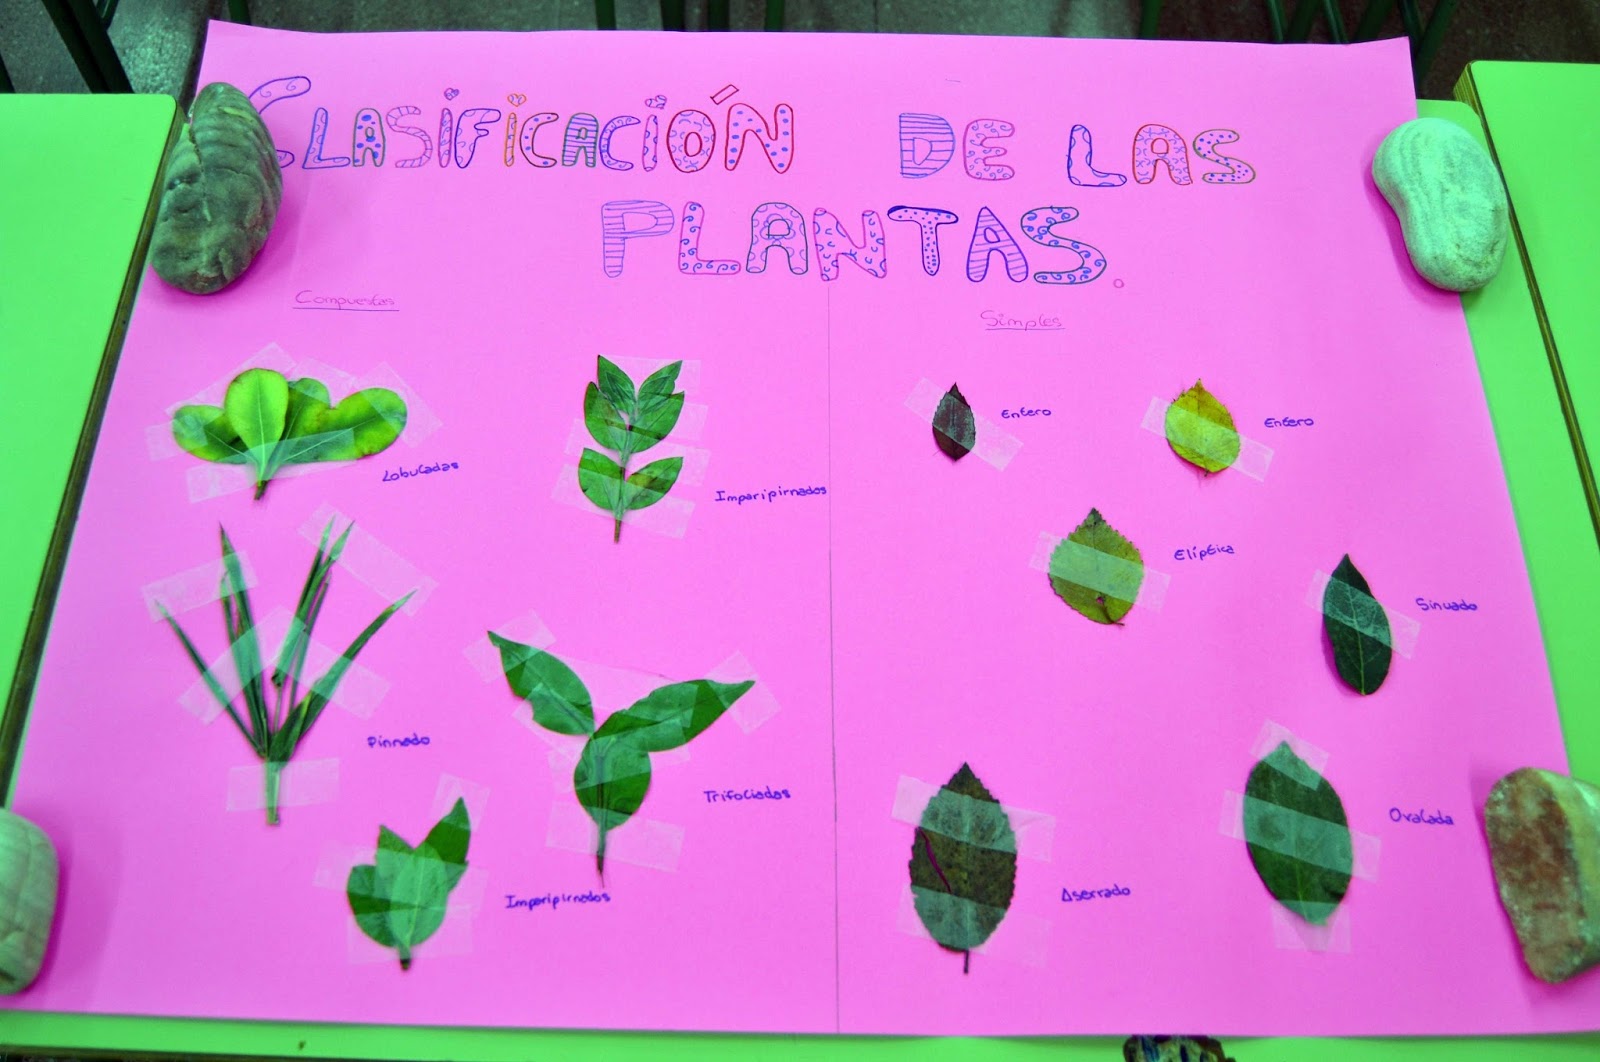 CLASIFICACIÓN DE LAS
PLANTAS.
Compuestas
Lobuladas
Imparipirnados
Pinnado
Trifoliadas
Imparipirnados
Simples
Entero
Entero
Elíptica
Sinuado
Ovalada
Aserrado